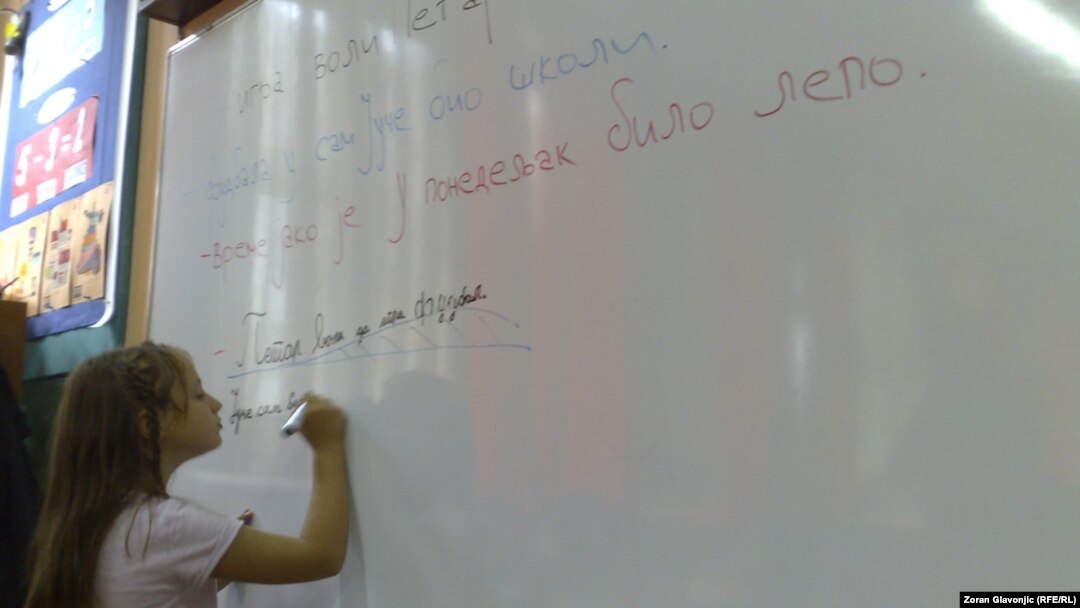 игра воли Петар
- фудбала у сам Јуче био школи.
- време јако је У понедељак било лепо.
- Петар воли да игра фудбал.
Јуче сам
5-3=2
Zoran Glavonjic (RFE/RL)